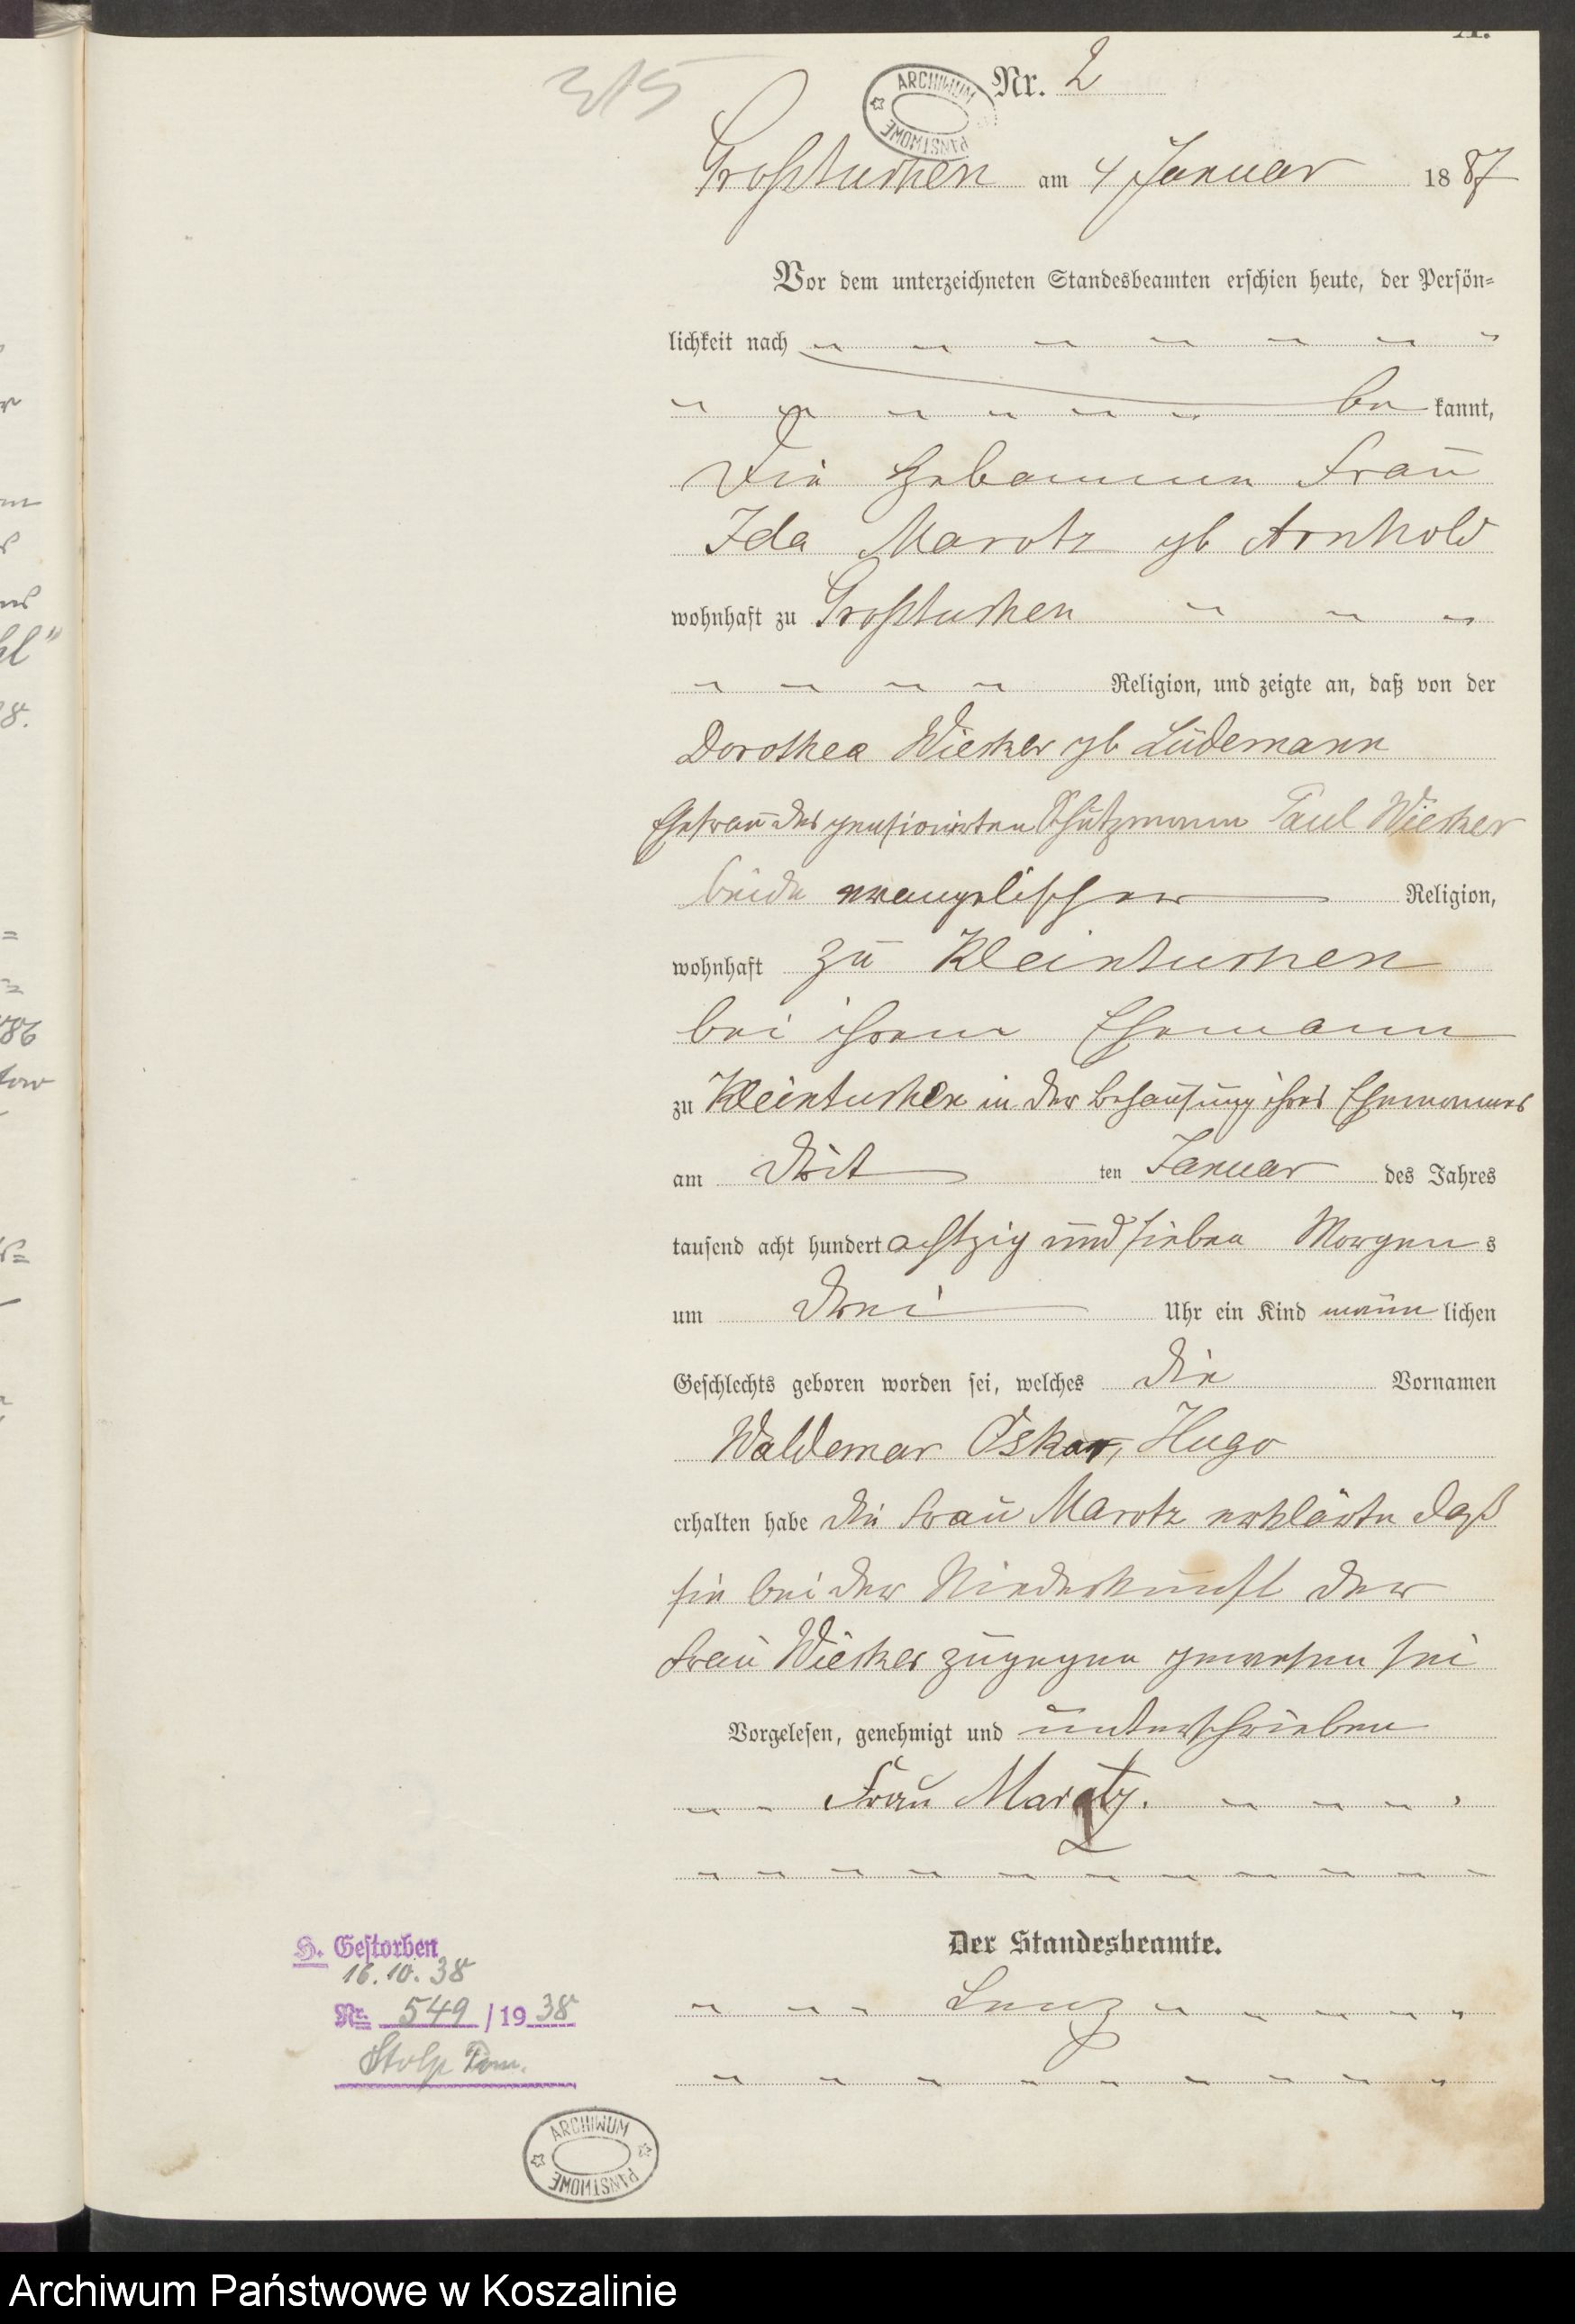 A.
315
Nr. 2
ARCHIWUM PAŃSTWOWE
Großtuchen am 4 Januar 1887
Vor dem unterzeichneten Standesbeamten erschien heute, der Persön=
lichkeit nach
be kannt,
die Hebamme Frau
Ida Marotz gb Arnhold
wohnhaft zu Großtuchen
Religion, und zeigte an, daß von der
Dorothea Wiecker gb Lüdemann
Ehefrau des pensionirten Schutzmann Paul Wiecker
beide evangelischer Religion,
wohnhaft zu Kleintuchen
bei ihrem Ehemann
zu Kleintuchen in der Behausung ihres Ehemannes
am drit ten Januar des Jahres
tausend acht hundert achtzig und sieben Morgens
um drei Uhr ein Kind männ lichen
Geschlechts geboren worden sei, welches die Vornamen
Waldemar Oskar, Hugo
erhalten habe die Frau Marotz erklärte daß
sie bei der Niederkunft der
Frau Wiecker zugegen gewesen sei
Vorgelesen, genehmigt und unterschrieben
Frau Marotz.
Der Standesbeamte.
Lenz
H. Gestorben
16.10.38
Nr. 549 / 19 38
Stolp Pom.
ARCHIWUM PAŃSTWOWE
Archiwum Państwowe w Koszalinie